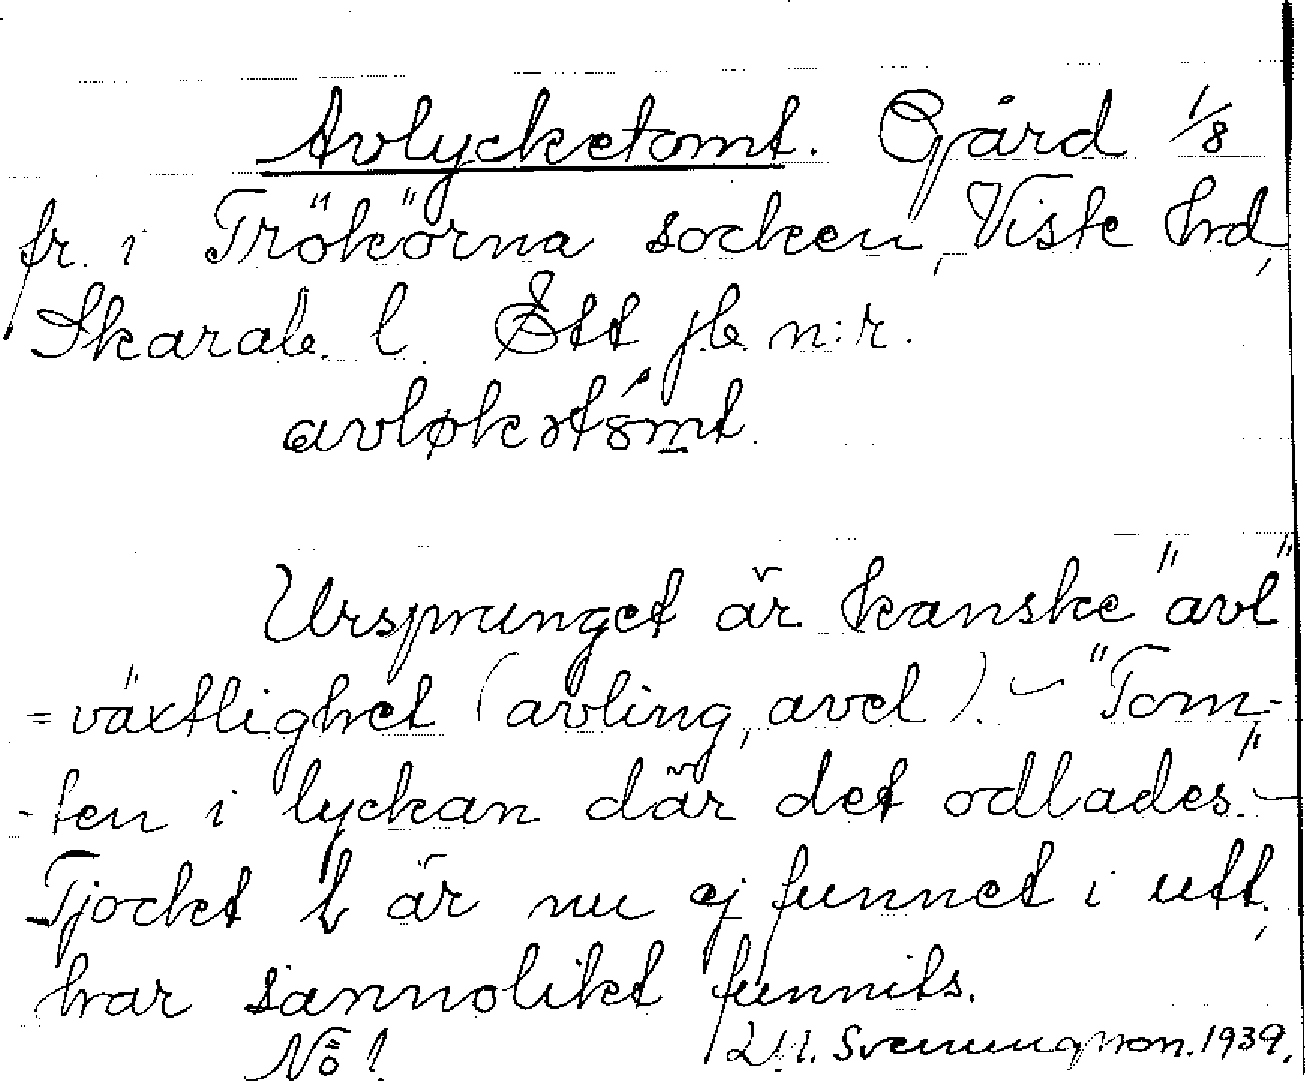 Avlycketomt. Gård 1/8
fr. i Trökörna socken, Viste hrd,
Skarab. l. Ett jb n:r.
avløkətómt.
Ursprunget är kanske "avl"
= växtlighet (avling, avel). – "Tom-
-ten i lyckan där det odlades." –
Tjockt l är nu ej funnet i utt.,
har sannolikt funnits.
Nö l. Svenungsson. 1939.